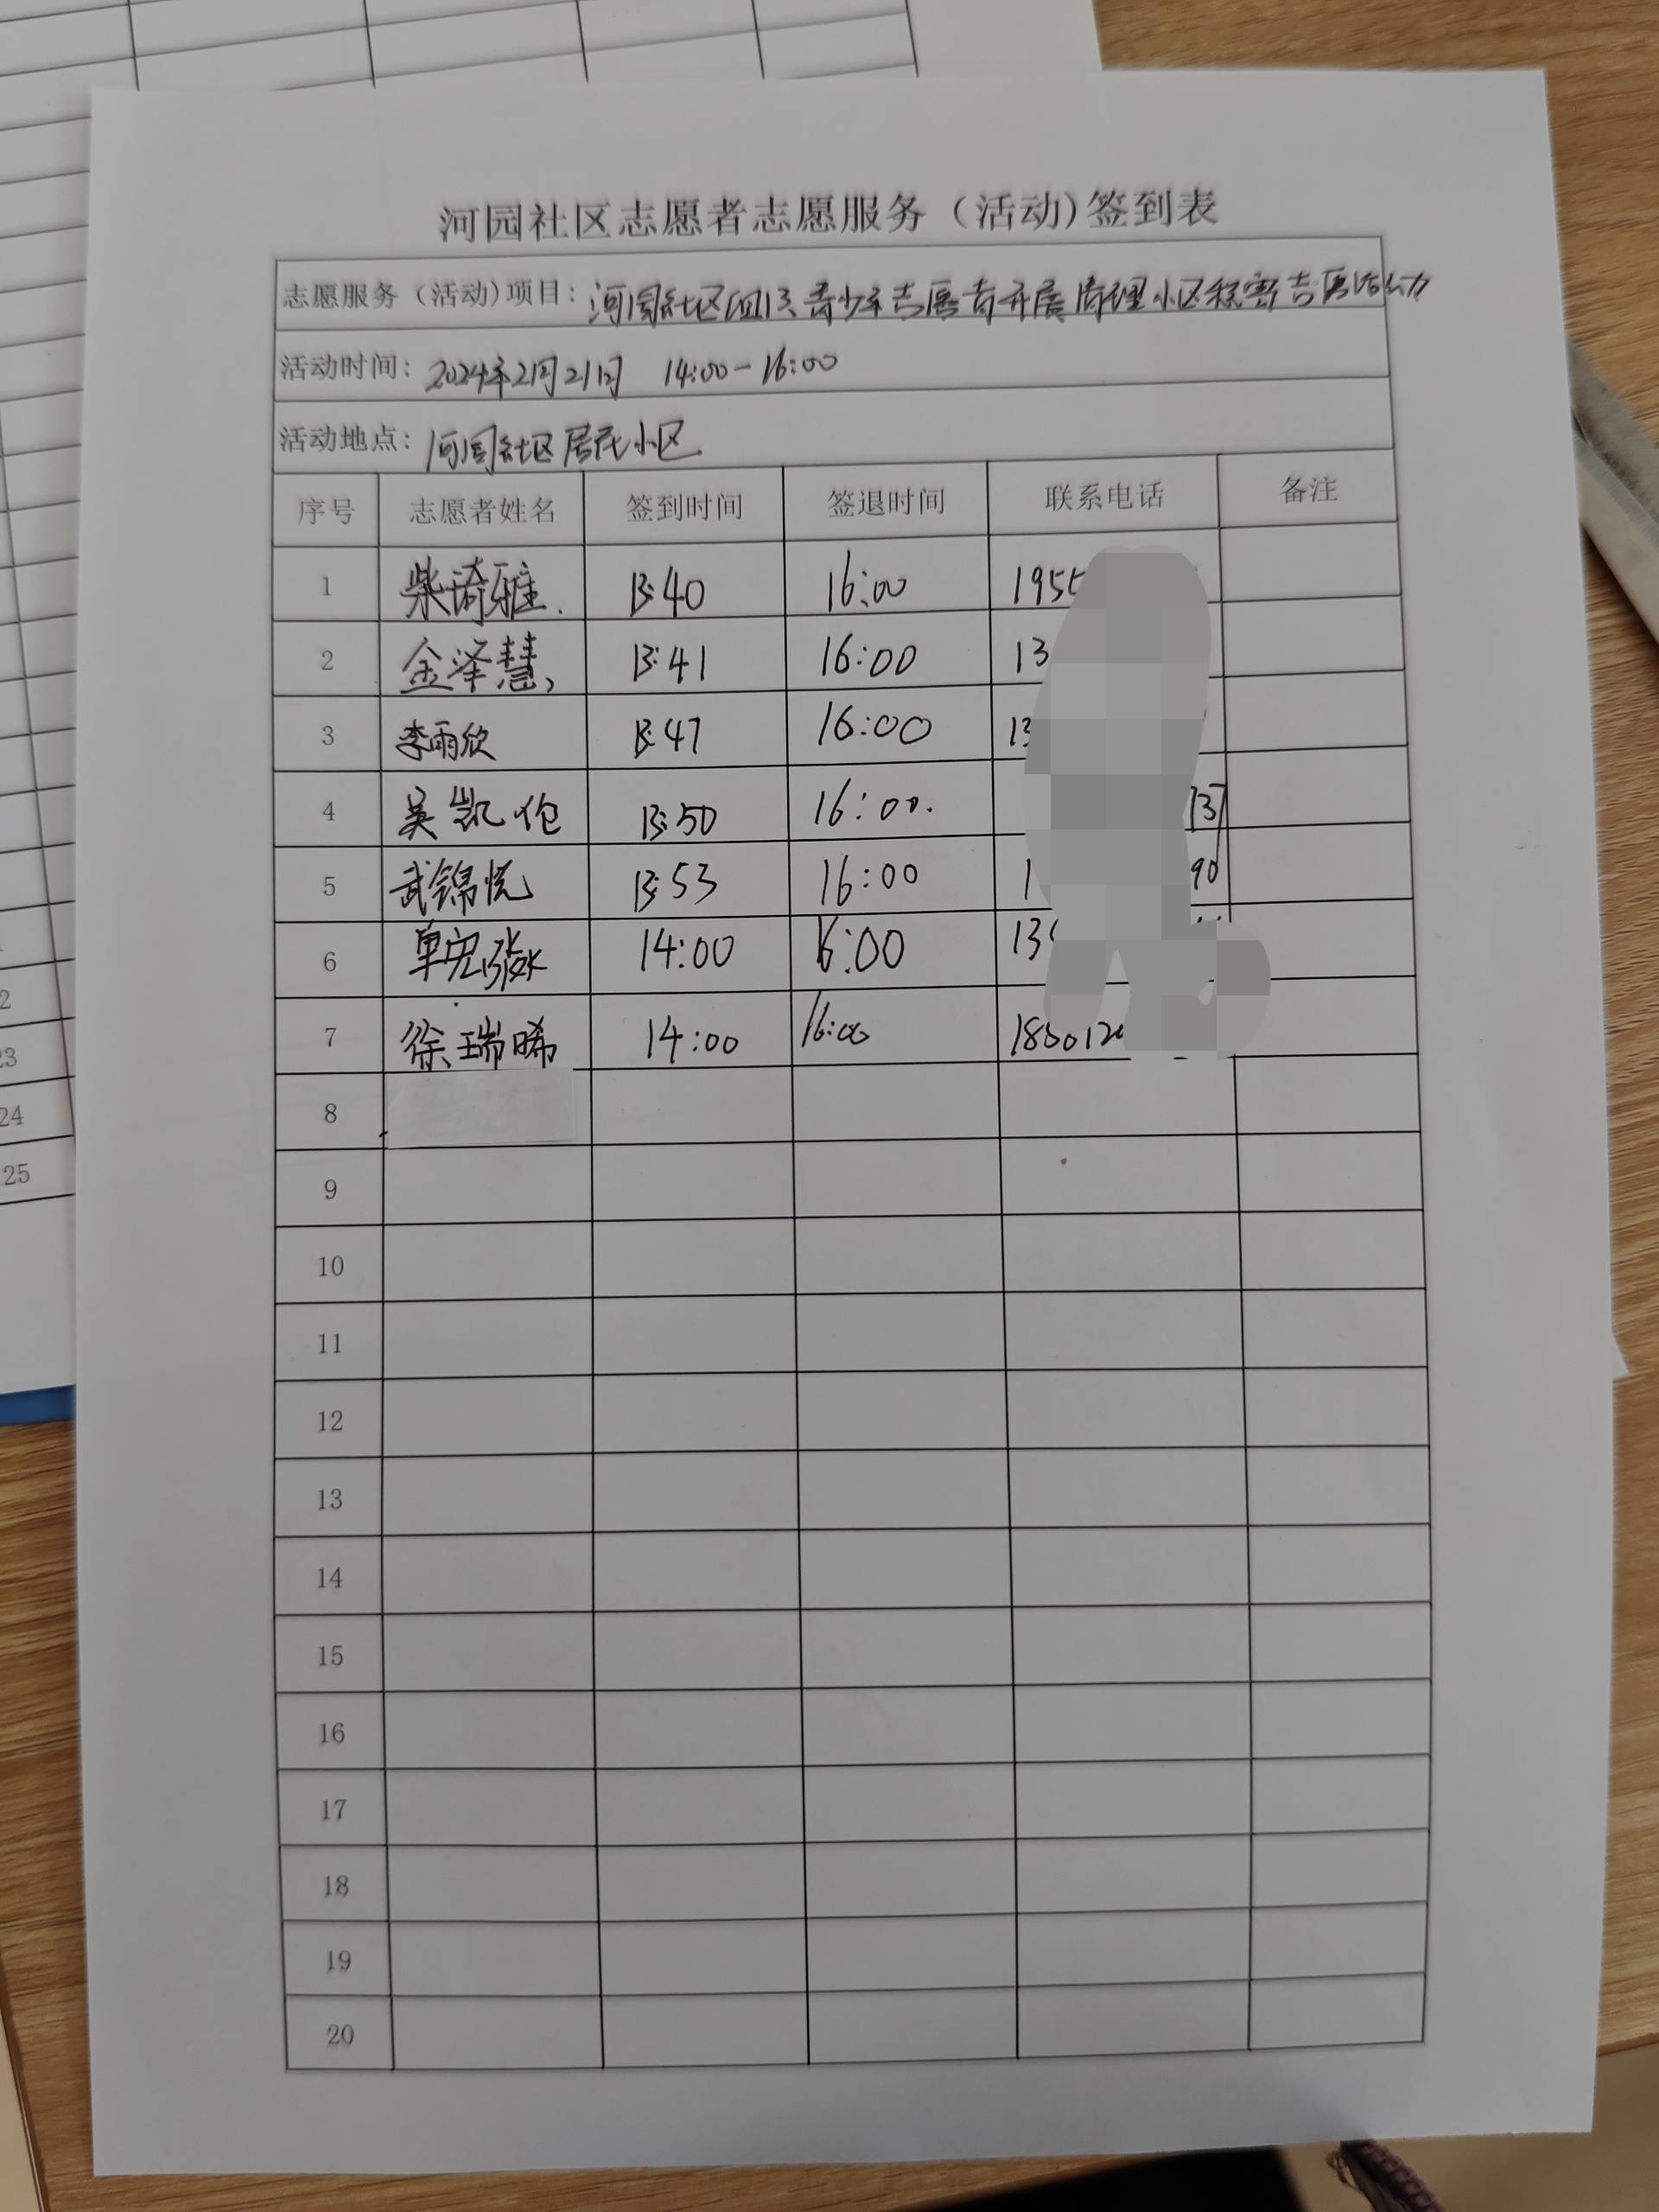 河园社区志愿者志愿服务（活动)签到表
志愿服务（活动)项目：河园社区组织青少年志愿者开展清理小区 志愿活动
活动时间：2024年2月21日 14:00-16:00
活动地点：河园社区居民小区
序号 志愿者姓名 签到时间 签退时间 联系电话 备注
1 柴琦雅 13:40 16:00 195
2 金泽慧 13:41 16:00 13
3 李雨欣 13:47 16:00 13
4 吴凯伦 13:50 16:00 137
5 武锦悦 13:53 16:00 1 90
6 单宏 14:00 16:00 13
7 徐瑞晞 14:00 16:00 1860120
8
9
10
11
12
13
14
15
16
17
18
19
20
2
23
24
25